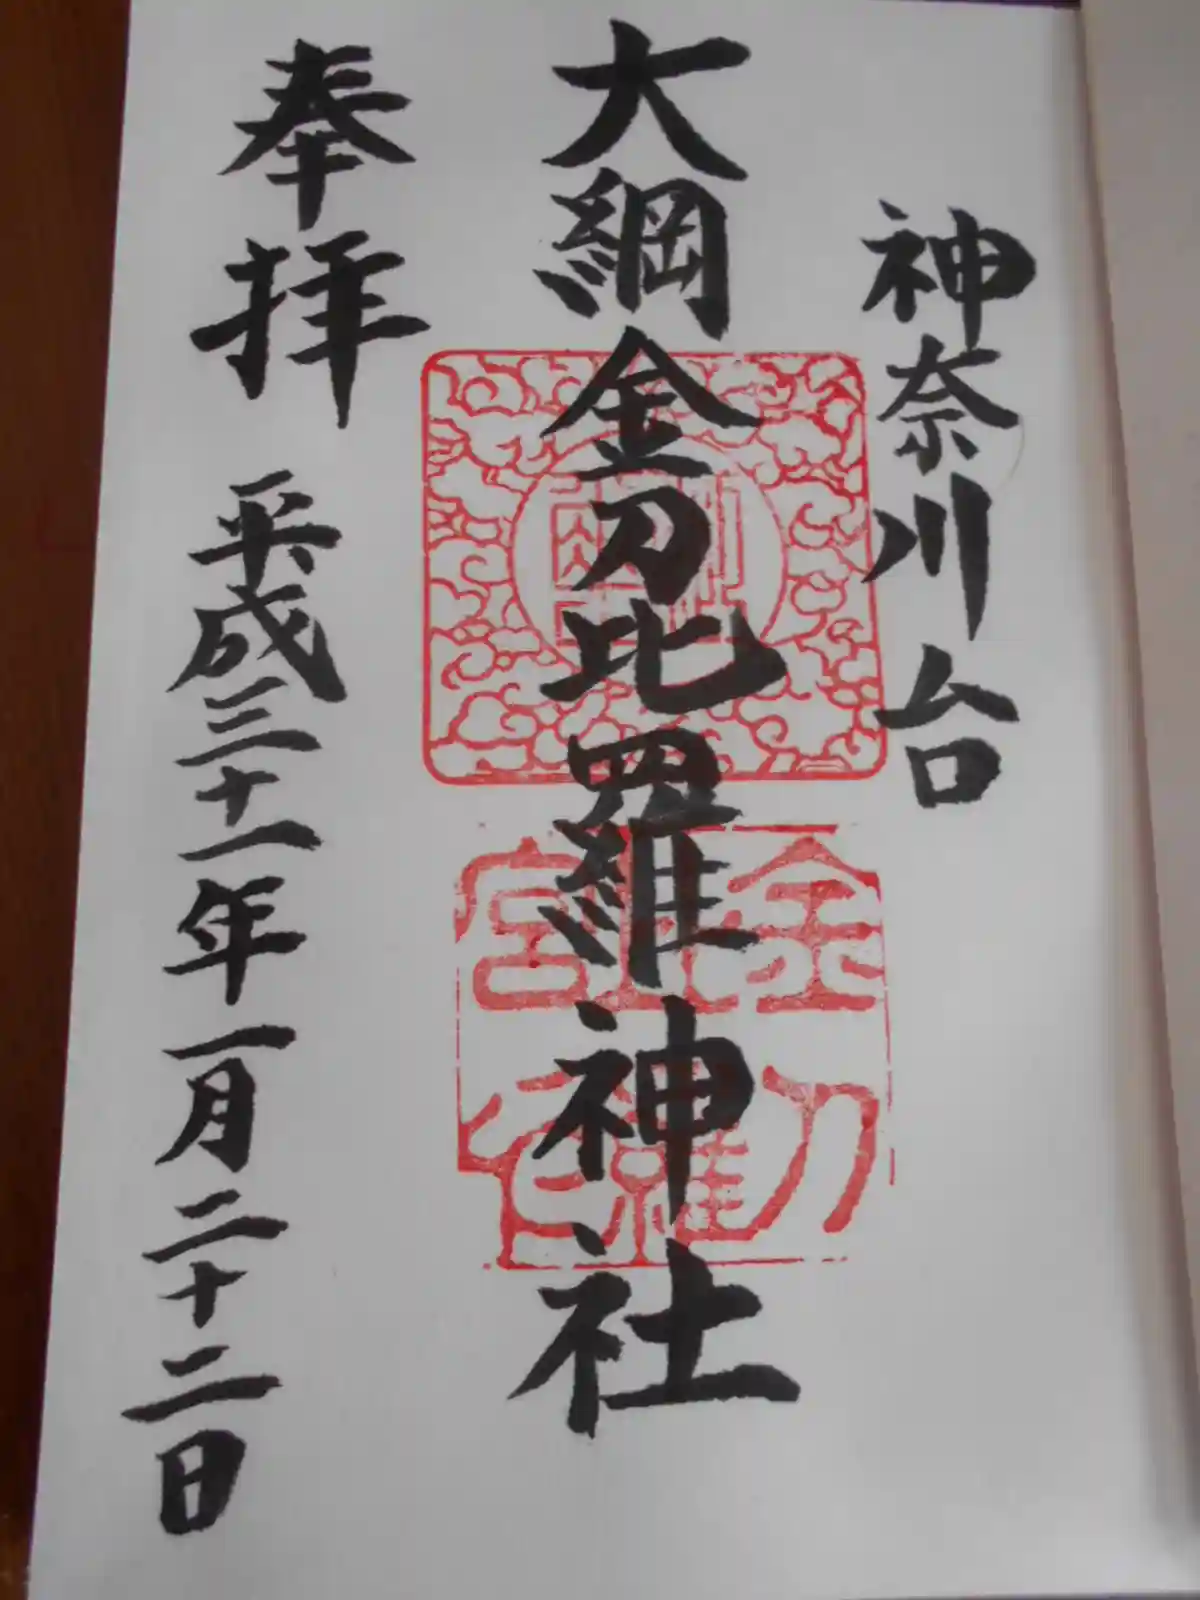 神奈川台
大綱金刀比羅神社
奉拝
平成三十一年一月二十二日
金刀
比羅
宮